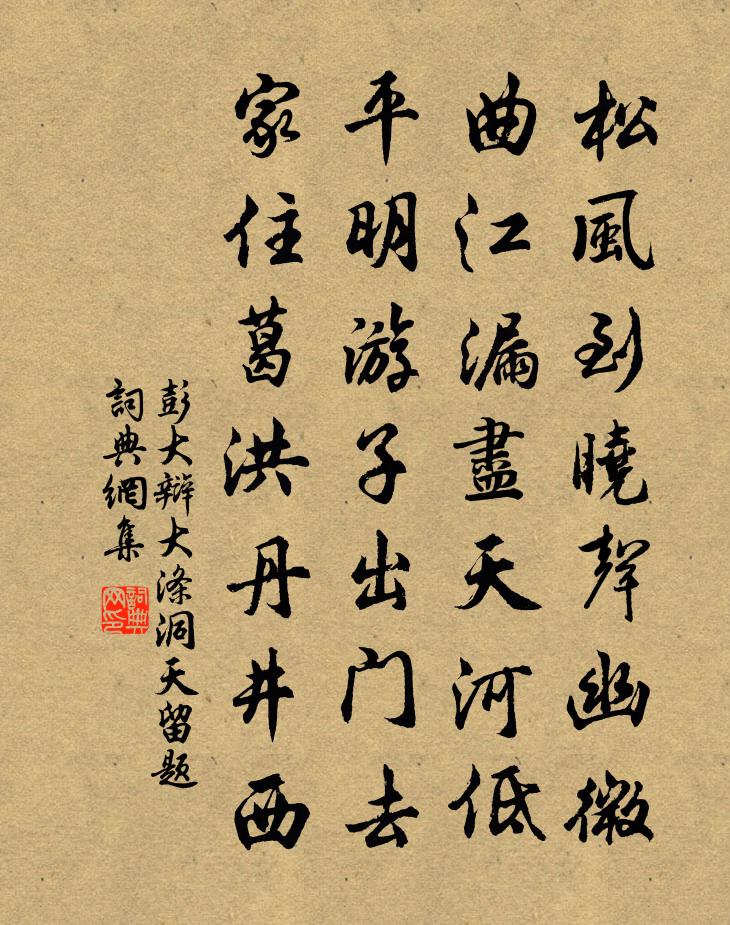 松風到曉聲幽微
曲江漏盡天河低
平明游子出门去
家住葛洪丹井西
彭大辯大涤洞天留题
詞典網集
詞典网印